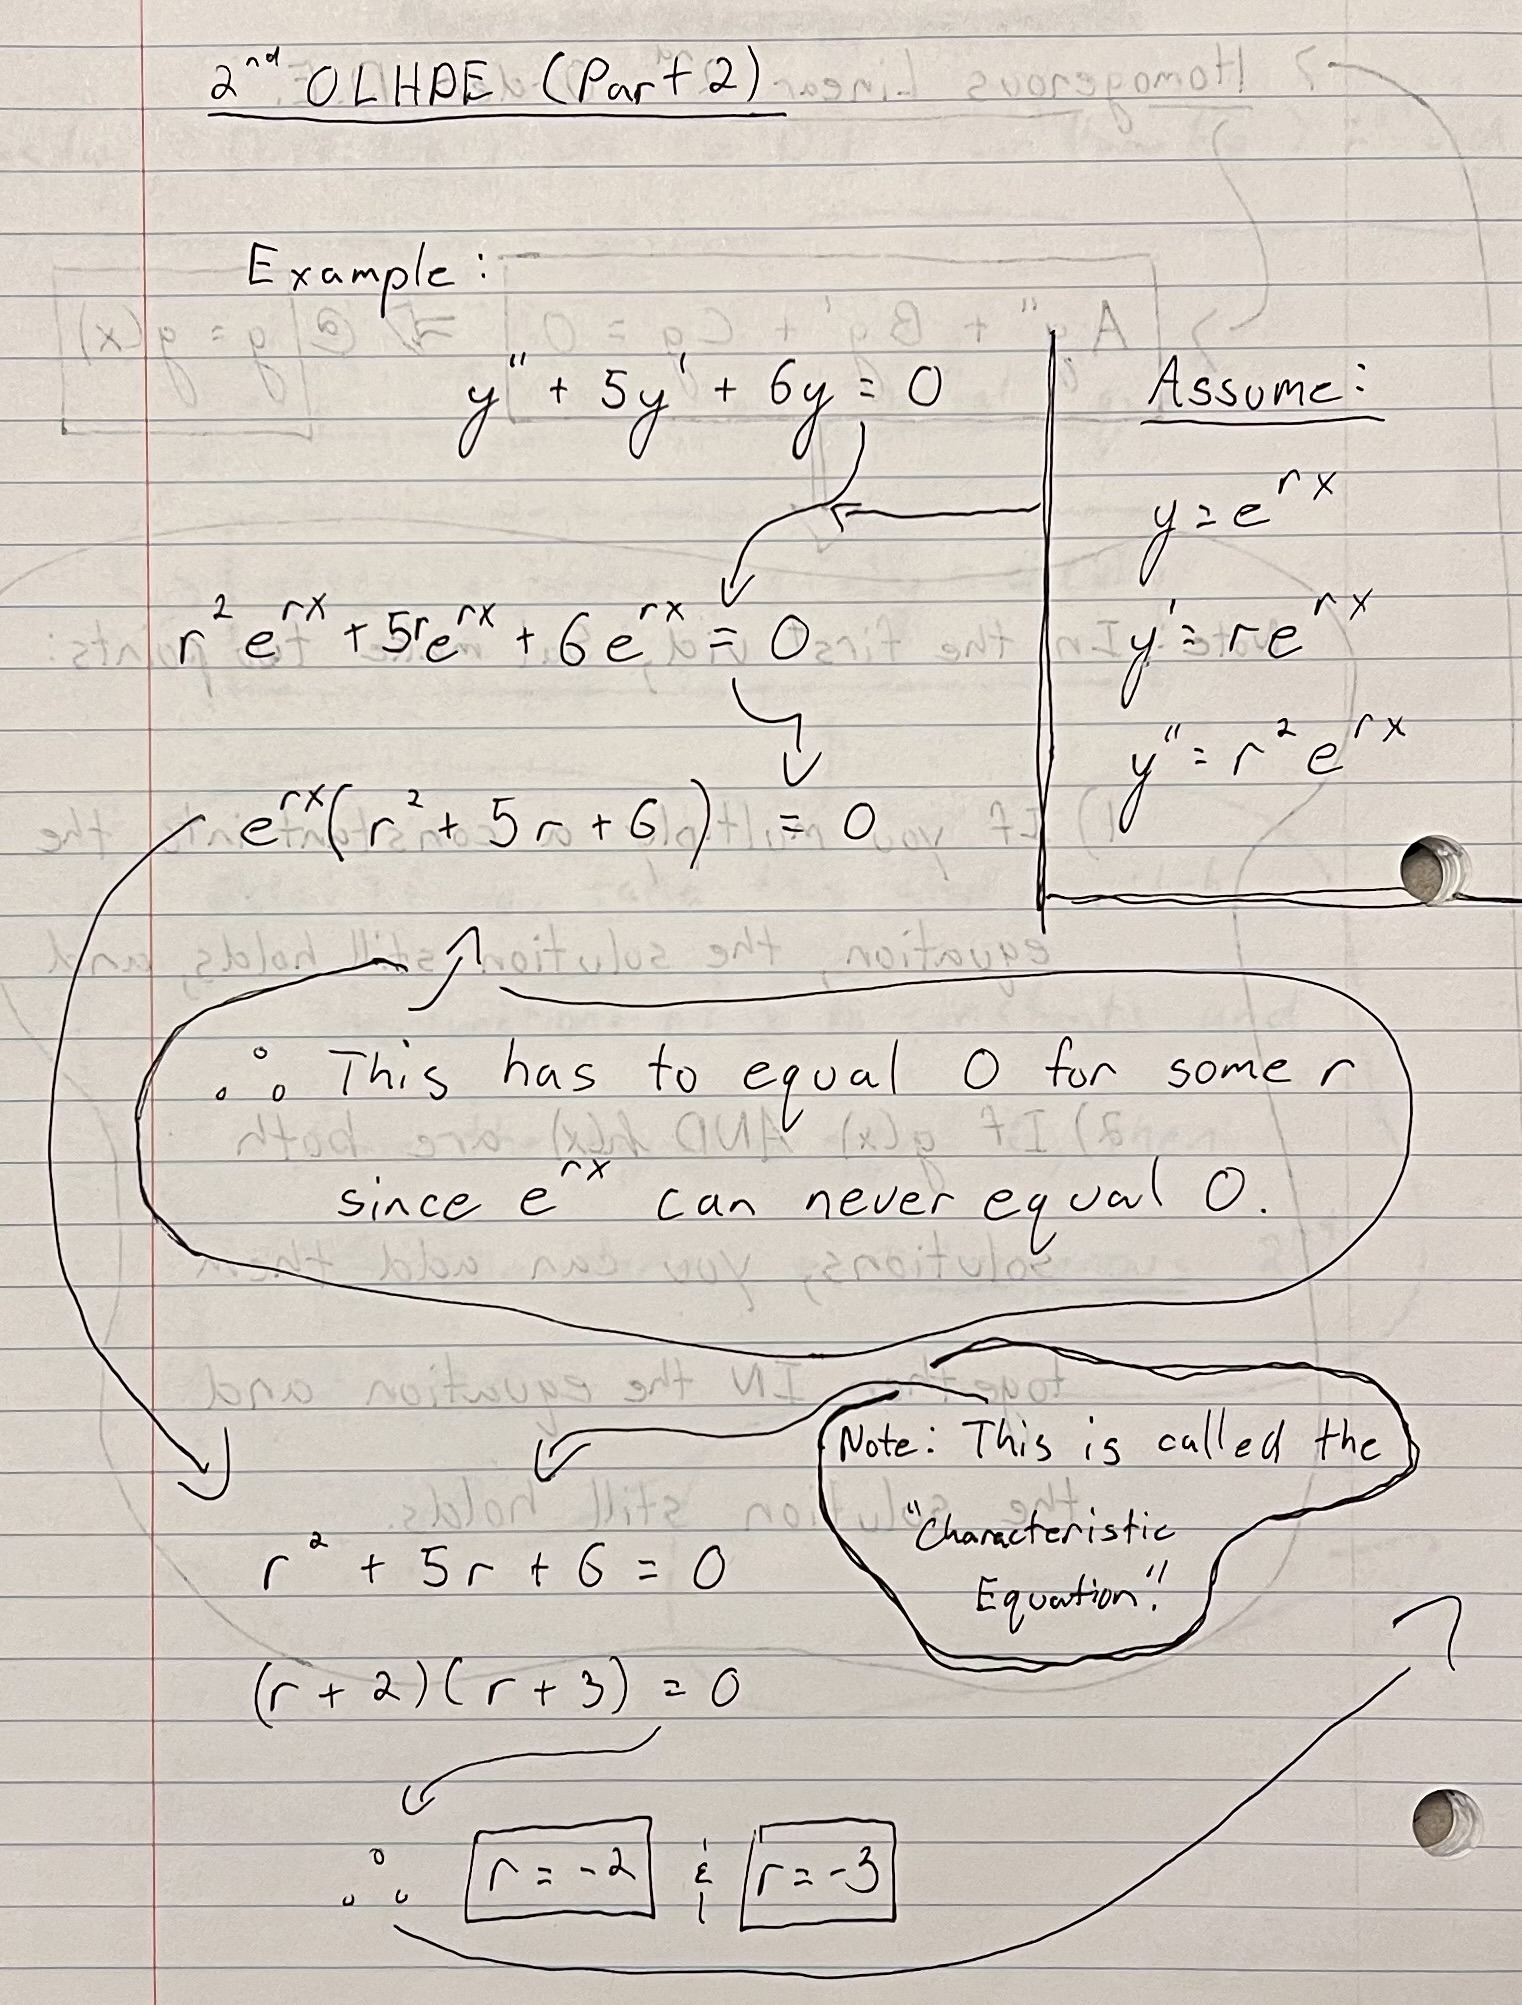 2nd OLHDE (Part 2)
Example:
y'' + 5y' + 6y = 0
Assume:
y = e^{rx}
y' = re^{rx}
y'' = r²e^{rx}
r²e^{rx} + 5re^{rx} + 6e^{rx} = 0
e^{rx}(r² + 5r + 6) = 0
∴ This has to equal 0 for some r
since e^{rx} can never equal 0.
Note: This is called the
"Characteristic
Equation".
r² + 5r + 6 = 0
(r + 2)(r + 3) = 0
∴ r = -2 & r = -3